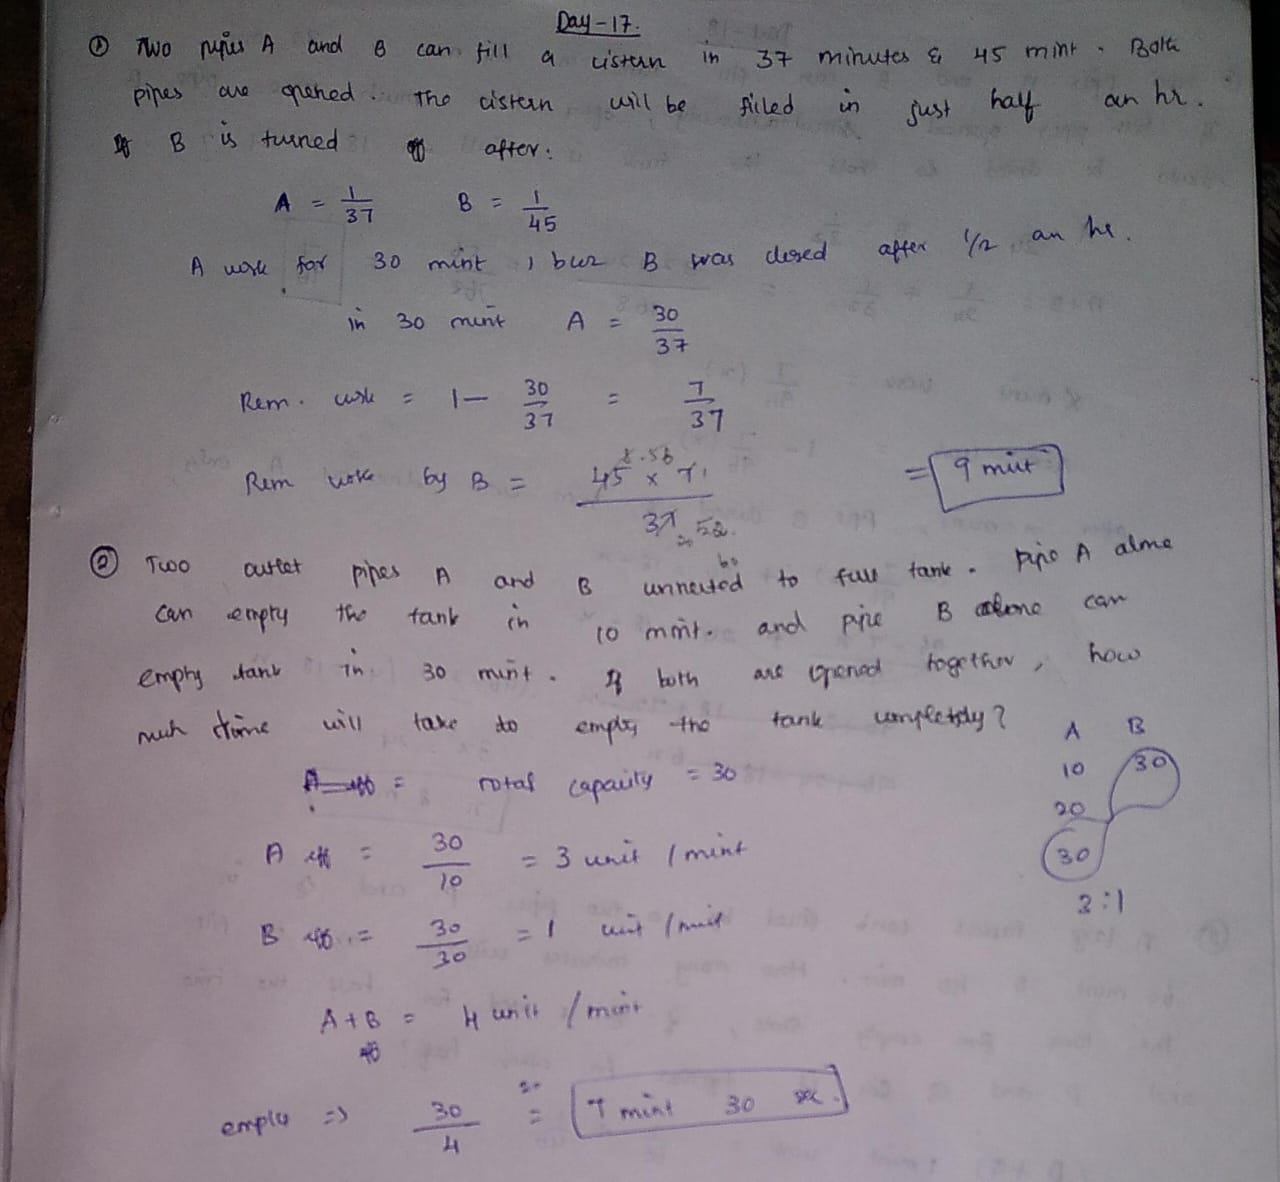 Day-17.
① Two pipes A and B can fill a cistern in 37 minutes & 45 mint. Both
pipes are opened. The cistern will be filled in just half an hr.
If B is turned off after:
A = 1/37 B = 1/45
A work for 30 mint, but B was closed after 1/2 an hr.
in 30 mint A = 30/37
Rem. work = 1 - 30/37 = 7/37
Rem work by B = 45 x 7 / 37 = 9 mint
② Two outlet pipes A and B connected to full tank. Pipe A alone
can empty the tank in 10 mint. and pipe B alone can
empty tank in 30 mint. If both are opened together, how
much time will take to empty the tank completely?
A B
10 30
20
30
3:1
A eff = total capacity = 30
A eff = 30/10 = 3 unit / mint
B eff. = 30/30 = 1 unit / mint
A+B = 4 unit / mint
eff
empty => 30/4 = 7 mint 30 sec.